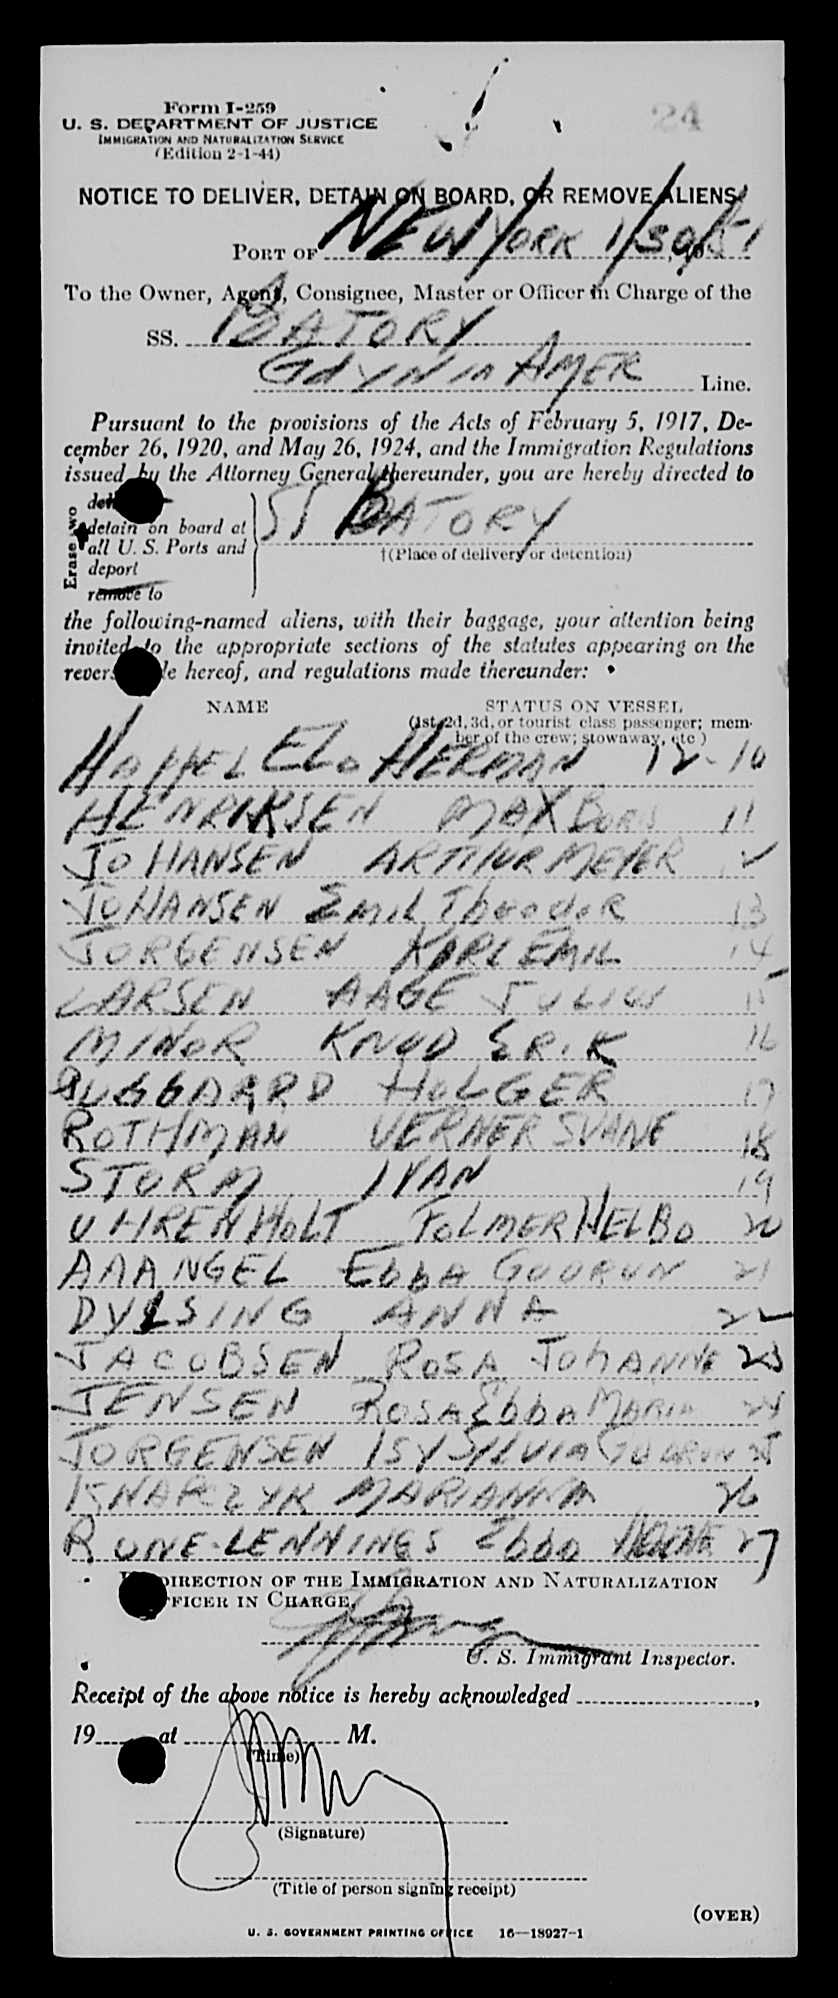 24
Form I-259
U. S. DEPARTMENT OF JUSTICE
IMMIGRATION AND NATURALIZATION SERVICE
(Edition 2-1-44)
NOTICE TO DELIVER, DETAIN ON BOARD, OR REMOVE ALIENS
PORT OF NEW YORK 1/30/51
To the Owner, Agent, Consignee, Master or Officer in Charge of the
SS. BATORY
GDYNIA AMER Line.
Pursuant to the provisions of the Acts of February 5, 1917, De-
cember 26, 1920, and May 26, 1924, and the Immigration Regulations
issued by the Attorney General thereunder, you are hereby directed to
Erase two
detain on board at
all U. S. Ports and
deport
remove to
SS BATORY
†(Place of delivery or detention)
the following-named aliens, with their baggage, your attention being
invited to the appropriate sections of the statutes appearing on the
hereof, and regulations made thereunder:
NAME STATUS ON VESSEL
(1st, 2d, 3d, or tourist class passenger; mem-
ber of the crew; stowaway, etc)
HERMAN 12-10
HENRIKSEN MAX 11
JOHANSEN ARTHUR MEYER 12
JOHANSEN EMIL THEODOR 13
JORGENSEN KARL EMIL 14
LARSEN AAGE JULIUS 15
MINOR KNUD ERIK 16
HOLGER 17
ROTHMAN VERNER SVANE 18
STORM IVAN 19
UHRENHOLT FOLMER HELBO 20
EBBA GUDRUN 21
ANNA 22
JACOBSEN ROSA JOHANNE 23
JENSEN ROSA EBBA MARIA 24
JORGENSEN SYLVIA GUDRUN 25
KNAPCZYK MARIANNA 26
RUNE-LENNINGS EBBA 27
DIRECTION OF THE IMMIGRATION AND NATURALIZATION
OFFICER IN CHARGE,
U. S. Immigrant Inspector.
Receipt of the above notice is hereby acknowledged ,
19 at M.
(Time)
(Signature)
(Title of person signing receipt)
(OVER)
U. S. GOVERNMENT PRINTING OFFICE 16—18927-1